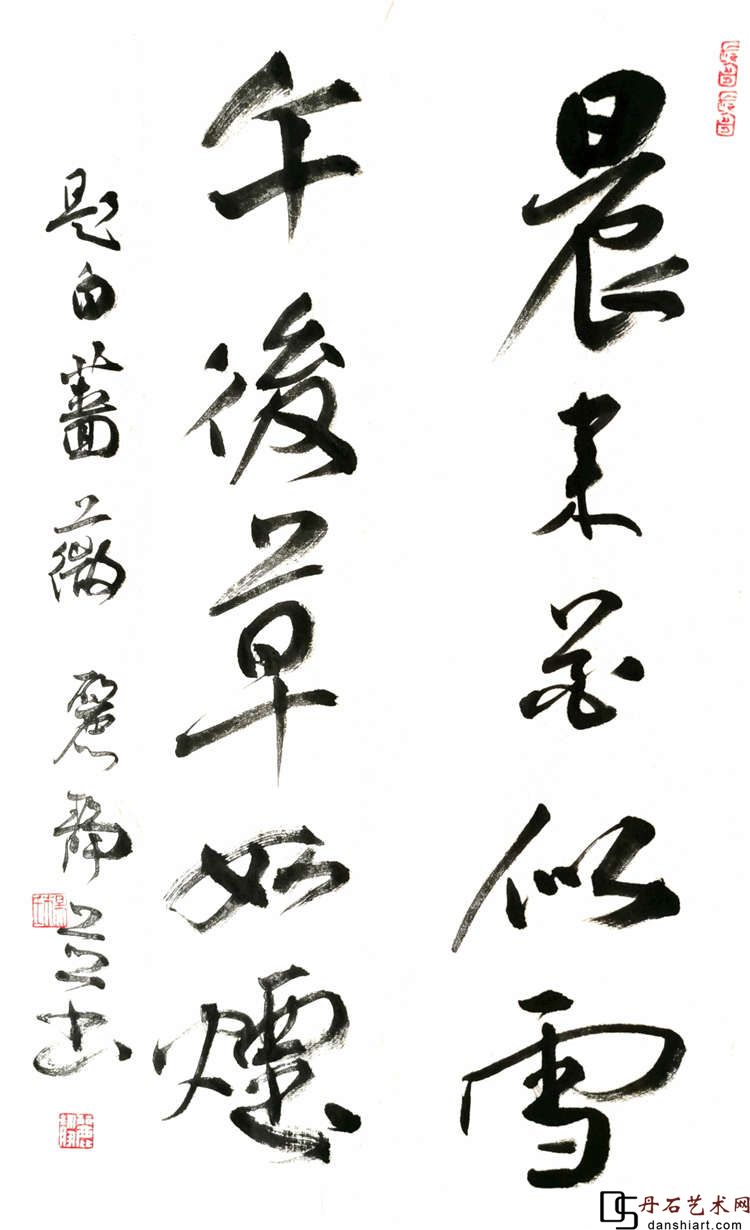 晨来花似雪
午後草如煙
題白薔薇 麗靜並书
丹石艺术网
danshiart.com